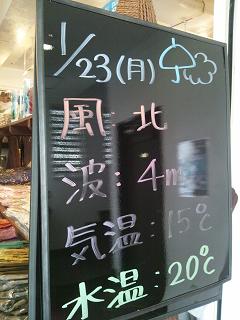 1/23(月)
風:北
波:4m
気温:15℃
水温:20℃